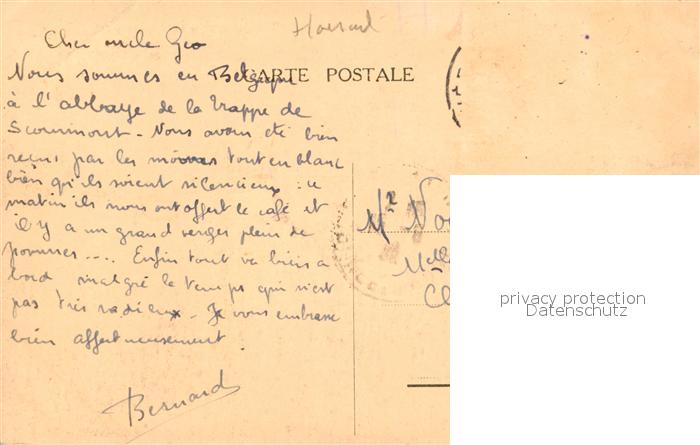 Cher oncle Geo
Nous sommes en Belgique
CARTE POSTALE
à l'abbaye de la Trappe de
Scourmont - Nous avons été bien
reçus par les moines tout en blanc
bien qu'ils soient silencieux : ce
matin ils nous ont offert le café et
il y a un grand verger plein de
pommes .... Enfin tout va bien a
bord malgré le temps qui n'est
pas très radieux - Je vous embrasse
bien affectueusement
Bernard
Mr
privacy protection
Datenschutz